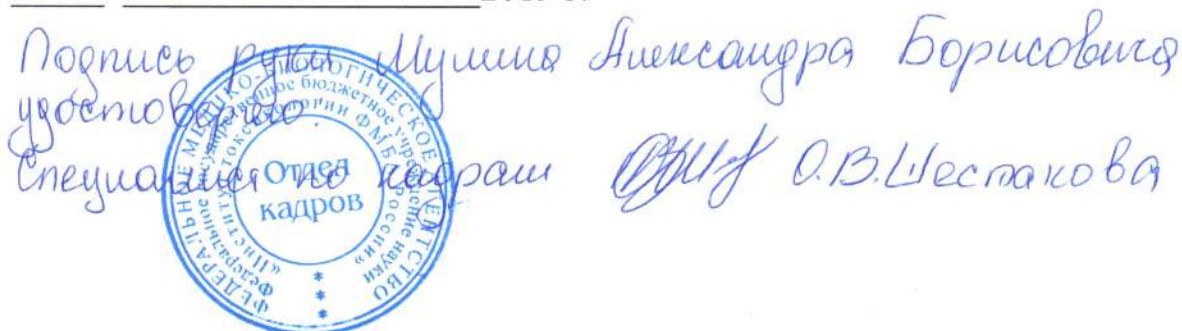 Подпись руки Мулина Александра Борисовича
удостоверяю
Специалист по кадрам О.В.Шестакова
ФЕДЕРАЛЬНОЕ МЕДИКО-БИОЛОГИЧЕСКОЕ АГЕНТСТВО
Федеральное государственное бюджетное учреждение науки
«Институт токсикологии ФМБА России»
Отдел
кадров
* * *